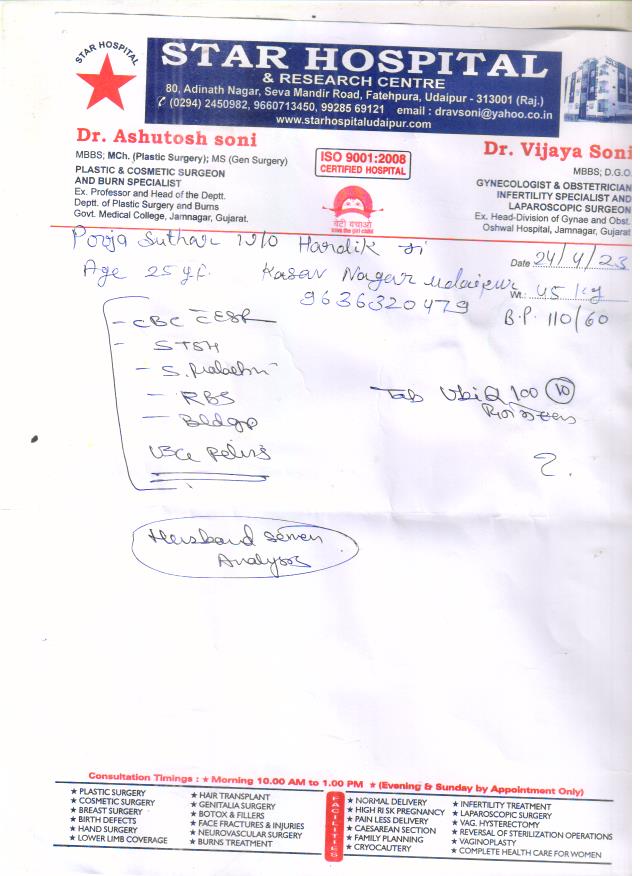 STAR HOSPITAL
STAR HOSPITAL
& RESEARCH CENTRE
80, Adinath Nagar, Seva Mandir Road, Fatehpura, Udaipur - 313001 (Raj.)
(0294) 2450982, 9660713450, 99285 69121 email : dravsoni@yahoo.co.in
www.starhospitaludaipur.com
Dr. Ashutosh soni
MBBS; MCh. (Plastic Surgery); MS (Gen Surgery)
PLASTIC & COSMETIC SURGEON
AND BURN SPECIALIST
Ex. Professor and Head of the Deptt.
Deptt. of Plastic Surgery and Burns
Govt. Medical College, Jamnagar, Gujarat.
ISO 9001:2008
CERTIFIED HOSPITAL
बेटी बचाओ
save the girl child
Dr. Vijaya Soni
MBBS; D.G.O.
GYNECOLOGIST & OBSTETRICIAN
INFERTILITY SPECIALIST AND
LAPAROSCOPIC SURGEON
Ex. Head-Division of Gynae and Obst.
Oshwal Hospital, Jamnagar, Gujarat
Pooja Suthar W/o Hardik
Date 24/4/23
Age 25 yr. Nagar Udaipur
Wt. 45 kg
9636320479
B.P. 110/60
- CBC ESR
- STSH
- S. Prolactin
- RBS
- Bldgp
Tab UbiQ 100 10
Pelvis
2.
Husband Semen
Analysis
Consultation Timings : ★ Morning 10.00 AM to 1.00 PM ★ (Evening & Sunday by Appointment Only)
★ PLASTIC SURGERY
★ COSMETIC SURGERY
★ BREAST SURGERY
★ BIRTH DEFECTS
★ HAND SURGERY
★ LOWER LIMB COVERAGE
★ HAIR TRANSPLANT
★ GENITALIA SURGERY
★ BOTOX & FILLERS
★ FACE FRACTURES & INJURIES
★ NEUROVASCULAR SURGERY
★ BURNS TREATMENT
FACILITIES
★ NORMAL DELIVERY
★ HIGH RISK PREGNANCY
★ PAIN LESS DELIVERY
★ CAESAREAN SECTION
★ FAMILY PLANNING
★ CRYOCAUTERY
★ INFERTILITY TREATMENT
★ LAPAROSCOPIC SURGERY
★ VAG. HYSTERECTOMY
★ REVERSAL OF STERILIZATION OPERATIONS
★ VAGINOPLASTY
★ COMPLETE HEALTH CARE FOR WOMEN